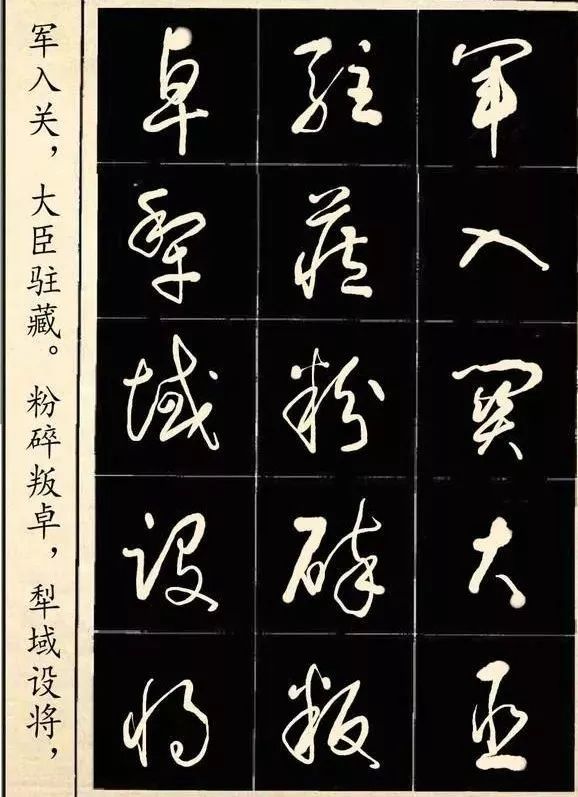 军入关大臣
驻藏粉碎叛
卓犁域设将
军入关，大臣驻藏。粉碎叛卓，犁域设将，